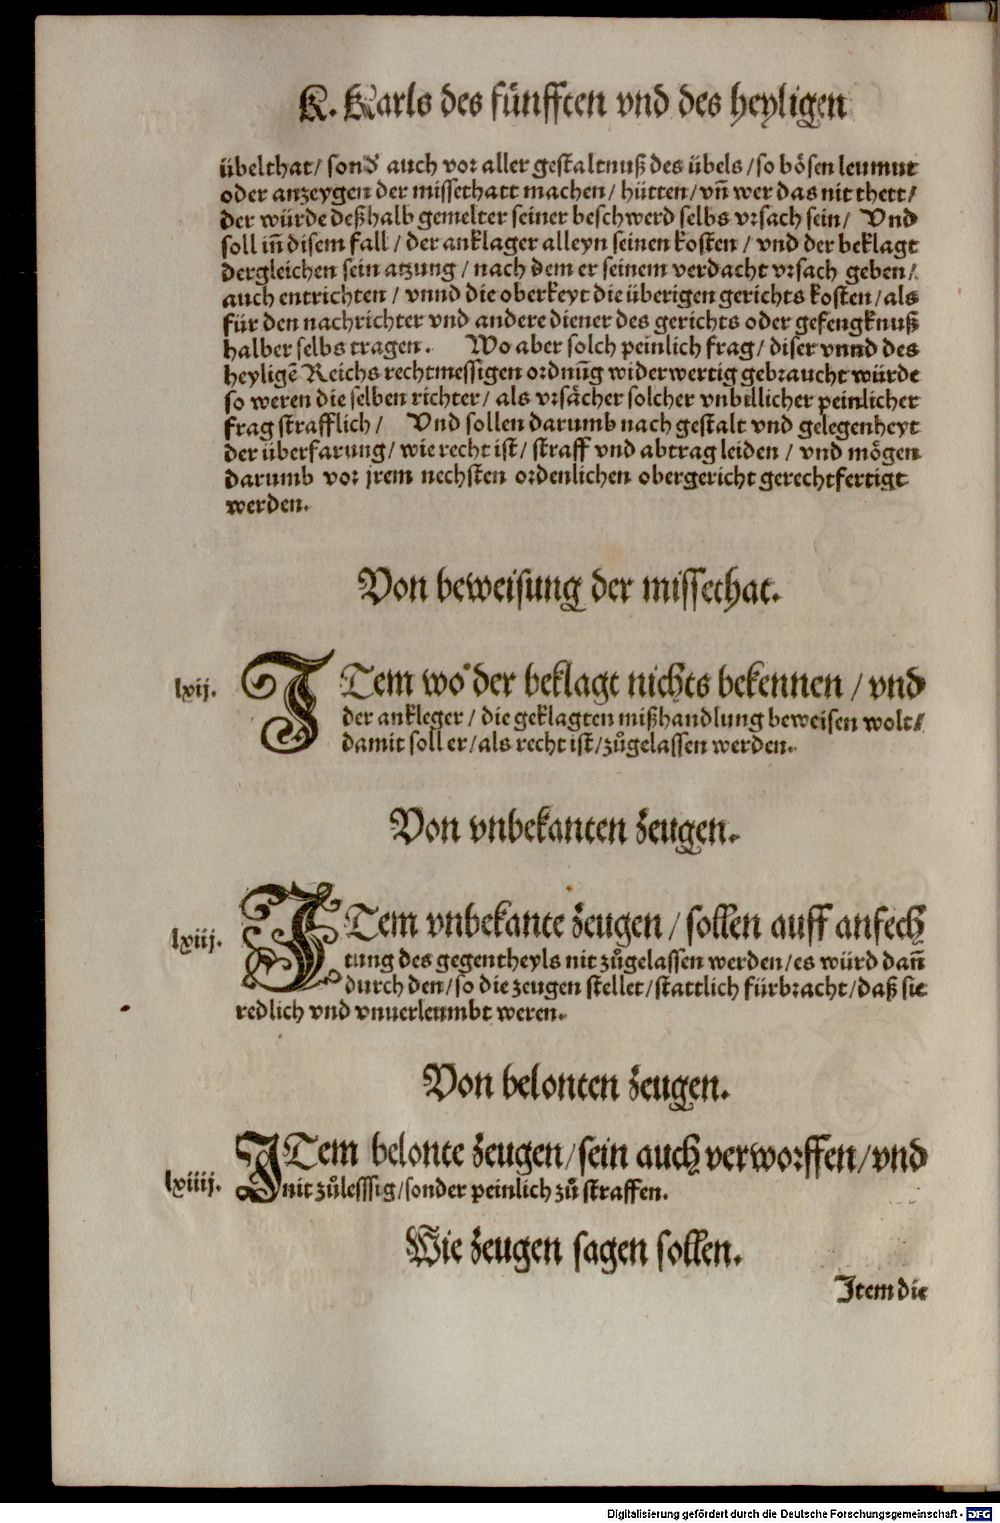 K. Karls des fünfften vnd des heyligen
übelthat/ sonď auch vor aller gestaltnuß des übels/ so bösen leumut
oder anzeygen der missethatt machen/ hütten/ vñ wer das nit thett/
der würde deßhalb gemelter seiner beschwerd selbs vrsach sein/ Vnd
soll iñ disem fall/ der anklager alleyn seinen kosten/ vnd der beklagt
dergleichen sein atzung/ nach dem er seinem verdacht vrsach geben/
auch entrichten/ vnnd die oberkeyt die überigen gerichts kosten/ als
für den nachrichter vnd andere diener des gerichts oder gefengknuß
halber selbs tragen. Wo aber solch peinlich frag/ diser vnnd des
heyligē Reichs rechtmessigen ordnūg widerwertig gebraucht würde
so weren die selben richter/ als vrsächer solcher vnbillicher peinlicher
frag strafflich/ Vnd sollen darumb nach gestalt vnd gelegenheyt
der überfarung/ wie recht ist/ straff vnd abtrag leiden/ vnd mögen
darumb vor jrem nechsten ordenlichen obergericht gerechtfertigt
werden.
Von beweisung der missethat.
lxij. ITem wo der beklagt nichts bekennen/ vnd
der ankleger/ die geklagten mißhandlung beweisen wolt/
damit soll er/ als recht ist/ zůgelassen werden.
Von vnbekanten zeugen.
lxiij. ITem vnbekante zeugen/ sollen auff anfech
tung des gegentheyls nit zůgelassen werden/ es würd dañ
durch den/ so die zeugen stellet/ stattlich fürbracht/ daß sie
redlich vnd vnuerleumbt weren.
Von belonten zeugen.
lxiiij. ITem belonte zeugen/ sein auch verworffen/ vnd
nit zůlesssig/ sonder peinlich zů straffen.
Wie zeugen sagen sollen.
Item die
Digitalisierung gefördert durch die Deutsche Forschungsgemeinschaft - DFG